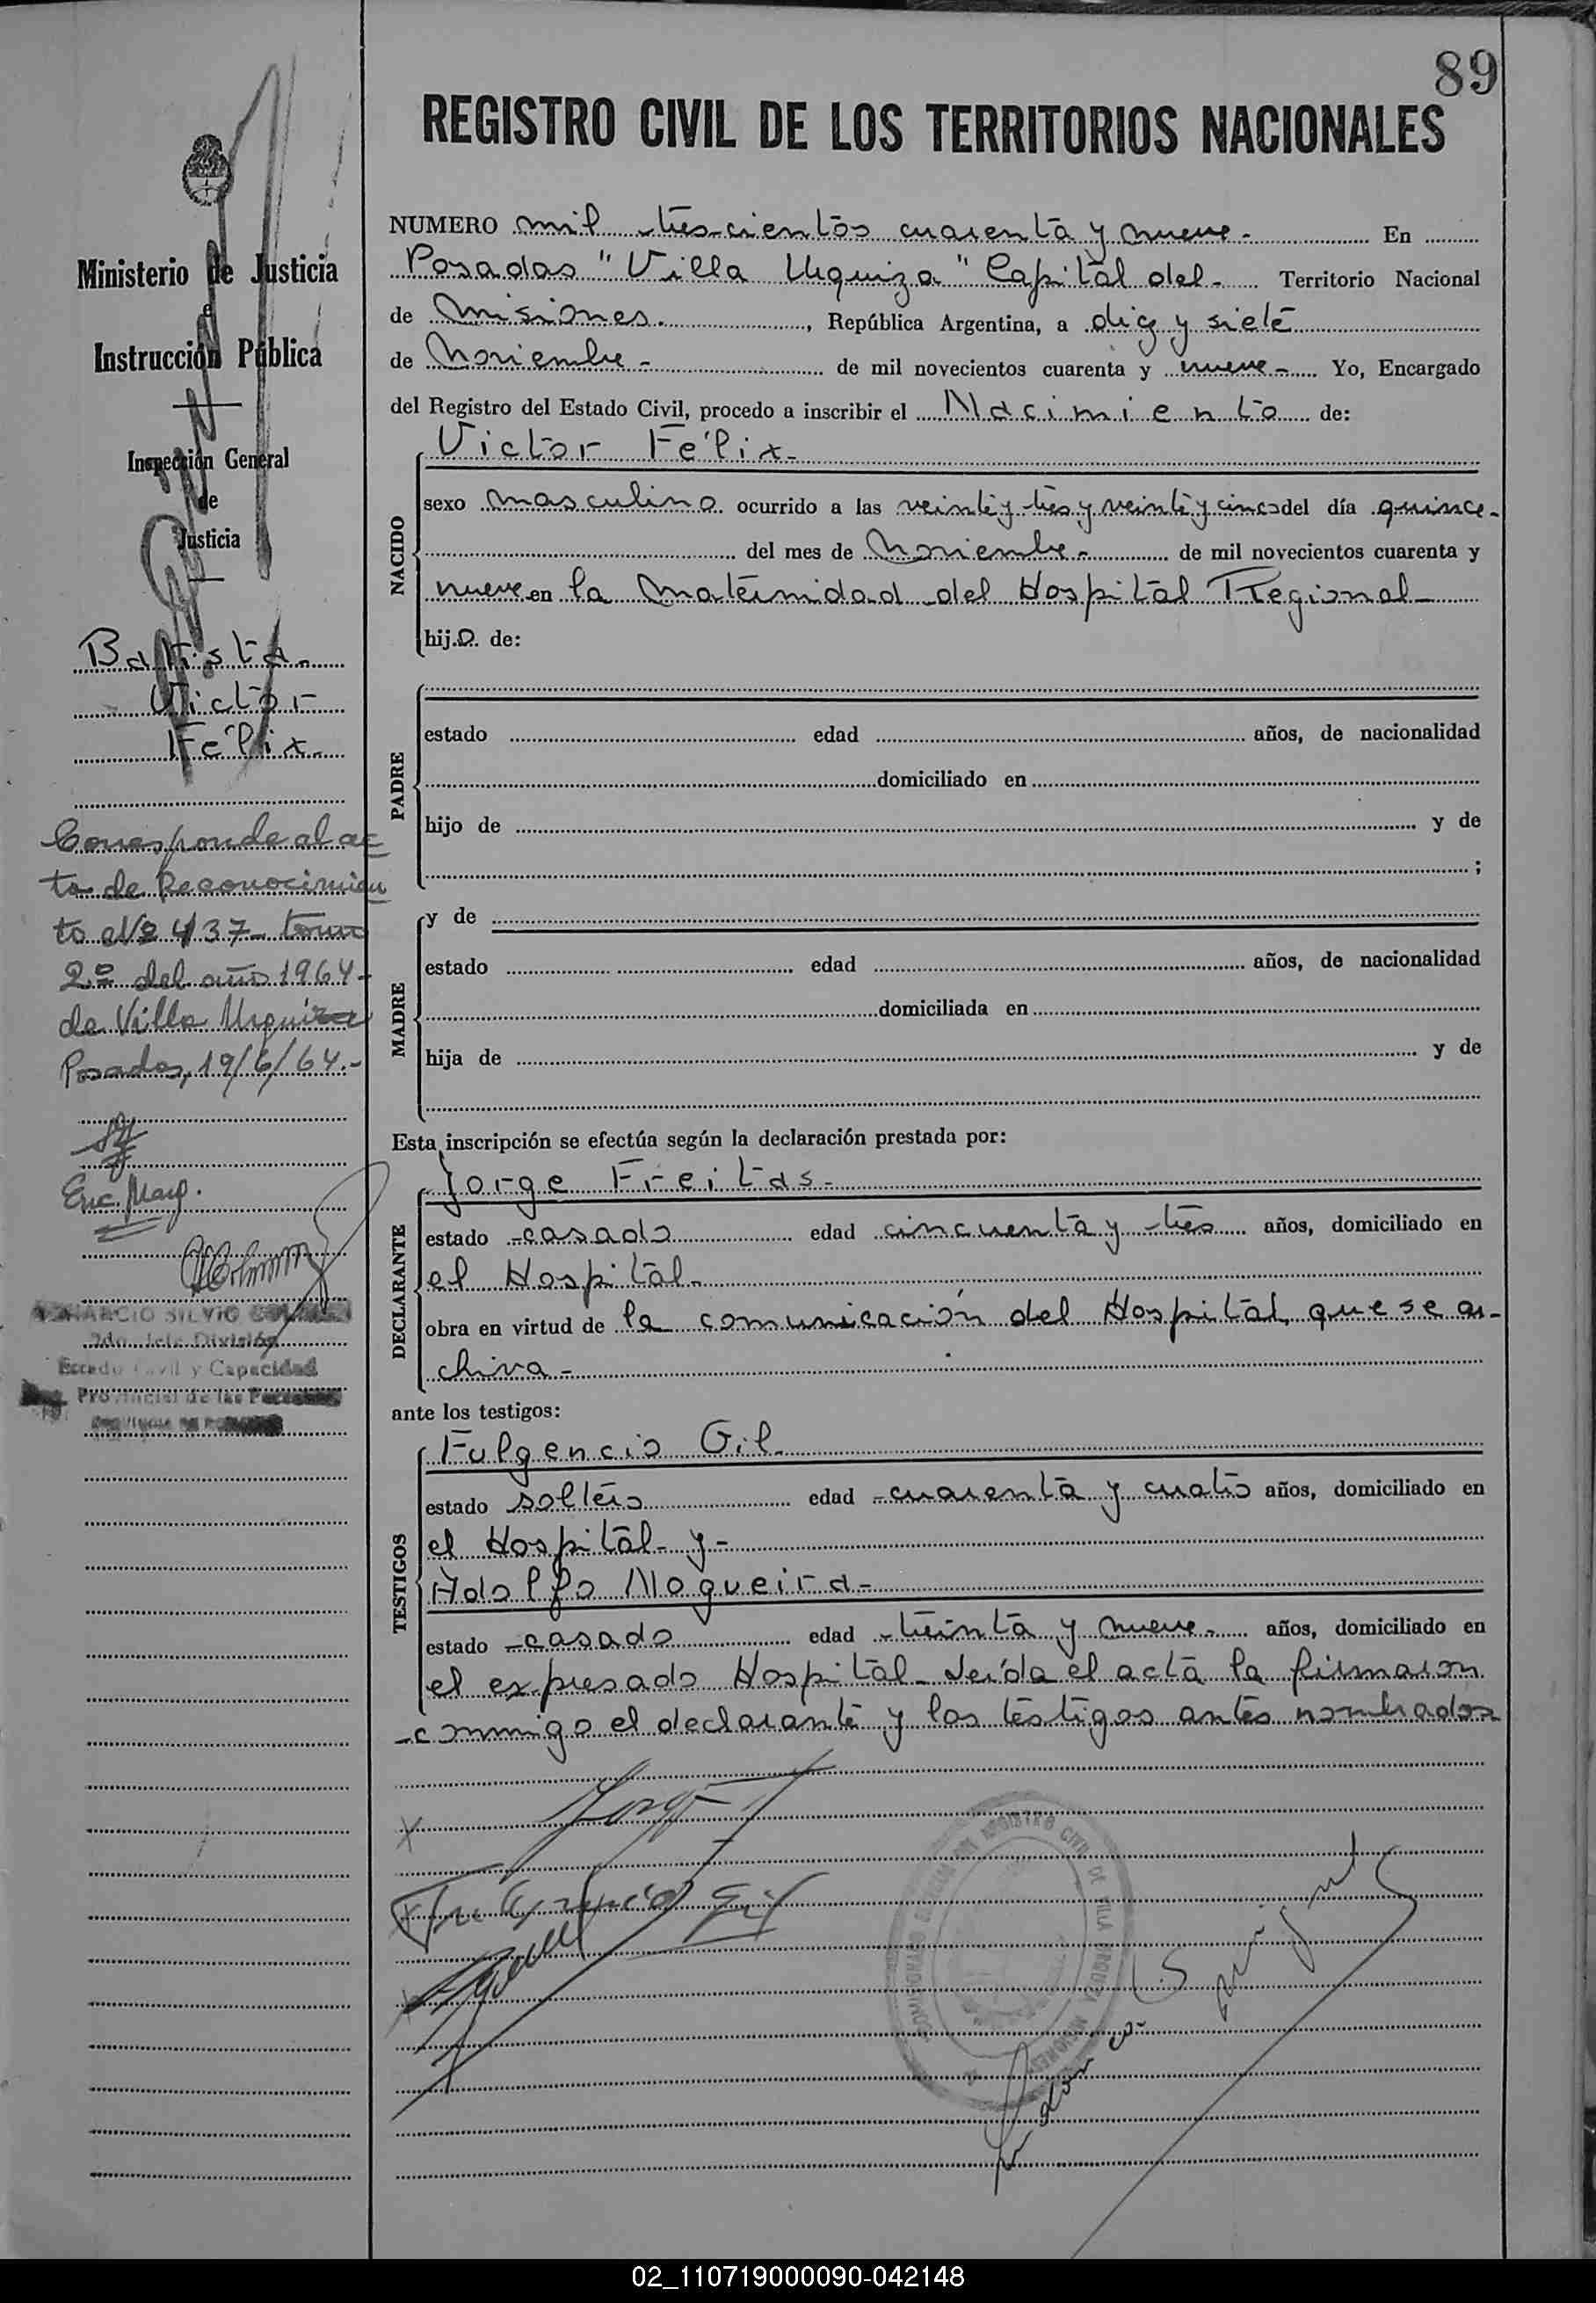 89
REGISTRO CIVIL DE LOS TERRITORIOS NACIONALES
NUMERO mil trescientos cuarenta y nueve.- En
Posadas "Villa Urquiza" Capital del- Territorio Nacional
de Misiones. , República Argentina, a diez y siete
de Noviembre - de mil novecientos cuarenta y nueve - Yo, Encargado
del Registro del Estado Civil, procedo a inscribir el Nacimiento de:
NACIDO
Victor Félix-
sexo masculino ocurrido a las veinte y tres y veinte y cinco del día quince-
del mes de Noviembre - de mil novecientos cuarenta y
nueve en la Maternidad del Hospital Regional-
hijo de:
PADRE
estado edad años, de nacionalidad
domiciliado en
hijo de y de
;
MADRE
y de
estado edad años, de nacionalidad
domiciliada en
hija de y de
Esta inscripción se efectúa según la declaración prestada por:
DECLARANTE
Jorge Freitas-
estado casado edad cincuenta y tres años, domiciliado en
el Hospital-
obra en virtud de la comunicación del Hospital, que se ar-
chiva-
ante los testigos:
TESTIGOS
Fulgencio Gil.
estado soltero edad cuarenta y cuatro años, domiciliado en
el Hospital- y-
Adolfo Nogueira-
estado casado edad treinta y nueve- años, domiciliado en
el expresado Hospital- Leída el acta la firmaron
conmigo el declarante y los testigos antes nombrados
Fulgencio Gil
REGISTRO CIVIL DE VILLA URQUIZA
MISIONES
Ministerio de Justicia
e
Instrucción Pública
Inspección General
de
Justicia
Batista.
Victor
Félix-
Corresponde al ac
ta de Reconocimien
to Nº 437- tomo
2º del año 1964-
de Villa Urquiza
Posadas, 19/6/64.-
Enc. Marg.
SILVIO
2do. Jefe División
Estado Civil y Capacidad
Provincial de las Personas
02_110719000090-042148